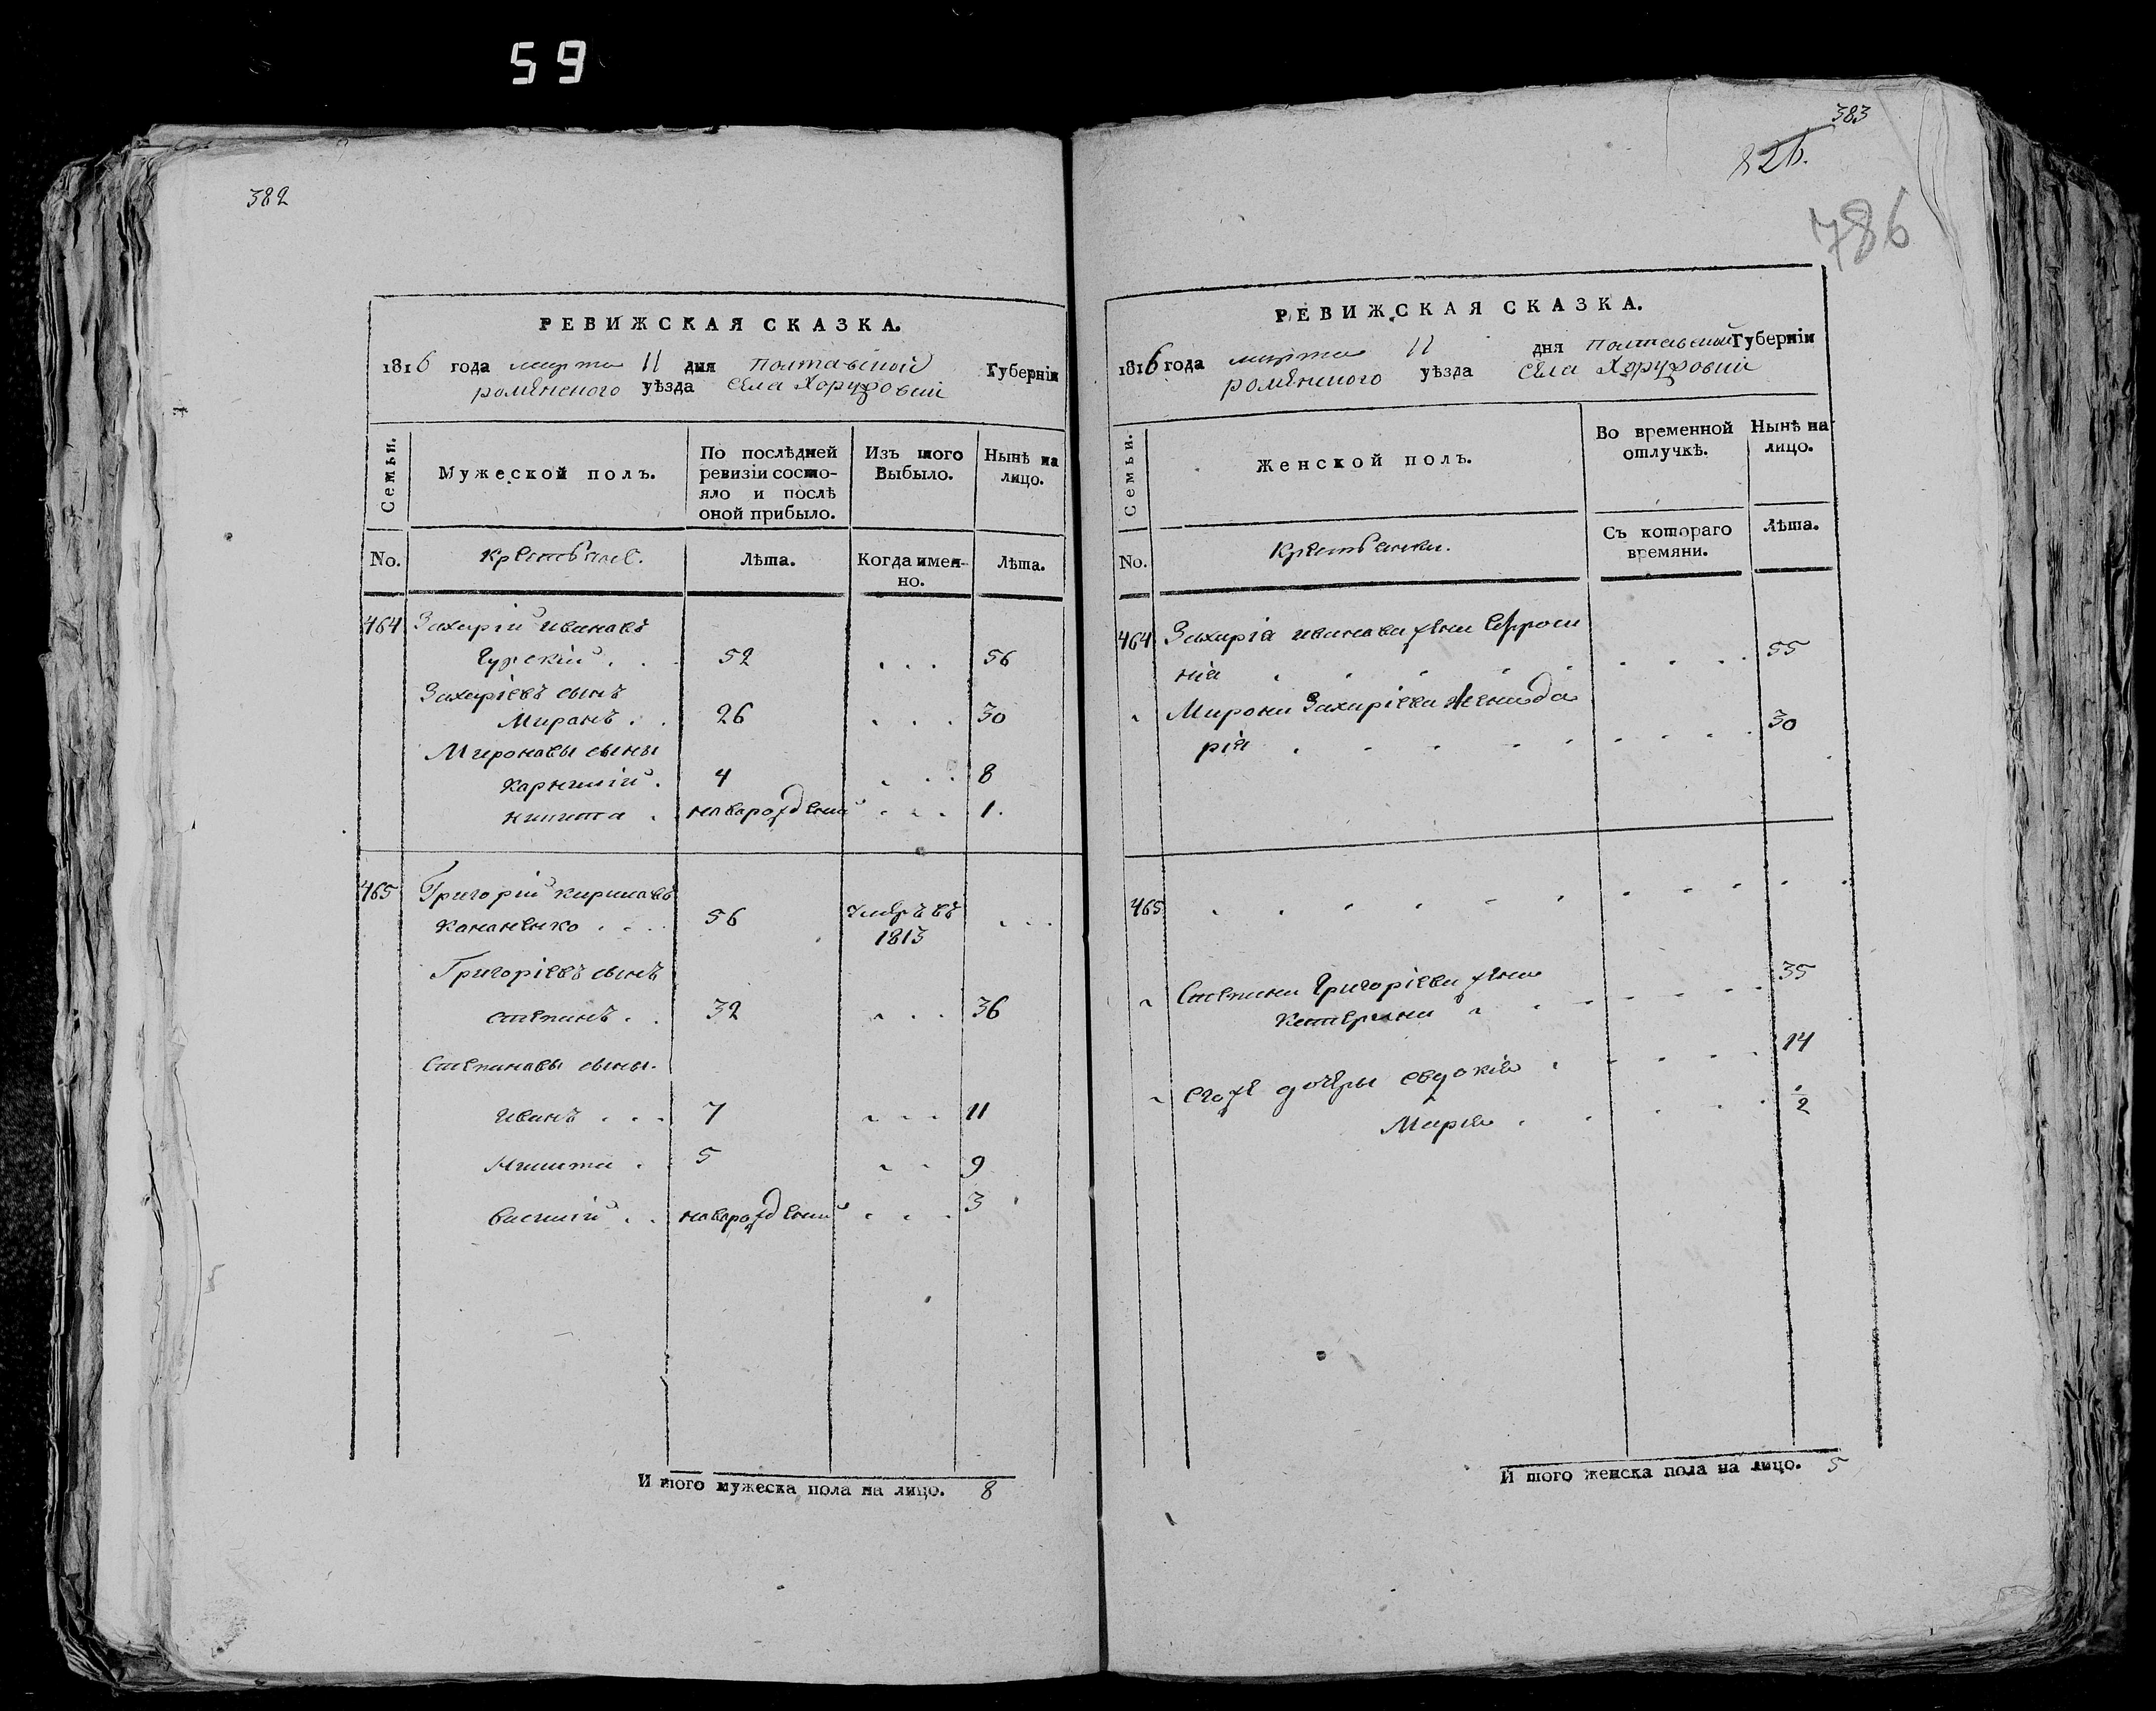 59
382
РЕВИЖСКАЯ СКАЗКА.
1816 года марта 11 дня полтавской Губерніи
роменского уѣзда села Хоружовки
Семьи.
Мужеской полъ.
По послѣдней ревизіи состояло и послѣ оной прибыло.
Изъ того Выбыло.
Нынѣ на лицо.
No.
Крестьяне.
Лѣта.
Когда именно.
Лѣта.
464 Захарій Ивановъ
Гурскій . . 52 . . . 56
Захаріевъ сынъ
Миронъ . . 26 . . . 30
Мироновы сыны
Карнилій . 4 . . . 8
Никита . новорожденій . . . 1.
465 Григорій Кириловъ
Кононенко . . . 56 умеръ въ 1813 . . .
Григоріевъ сынъ
Степанъ . . 32 . . . 36
Степановы сыны.
Иванъ . . . 7 . . . 11
Никита . 5 . . 9
Василій . . новорожденій . . . 3
И того мужеска пола на лицо. 8
383
826.
786
РЕВИЖСКАЯ СКАЗКА.
1816 года марта 11 дня полтавской Губерніи
роменского уѣзда села Хоружовки
Семьи.
Женской полъ.
Во временной отлучкѣ.
Нынѣ на лицо.
No.
Крестьянки.
Съ котораго времяни.
Лѣта.
464 Захарія Иванова жена Ефроси
нія . . . . . . . . . 55
Мирона Захаріева жена Да
рія . . . . . . . . . 30
465 . . . . . . . . . . .
Степана Григоріева жена
Катерина . . . . . . 35
его же дочери Евдокія . . . . . 14
Марія . . . . . 1/2
И того женска пола на лицо. 5